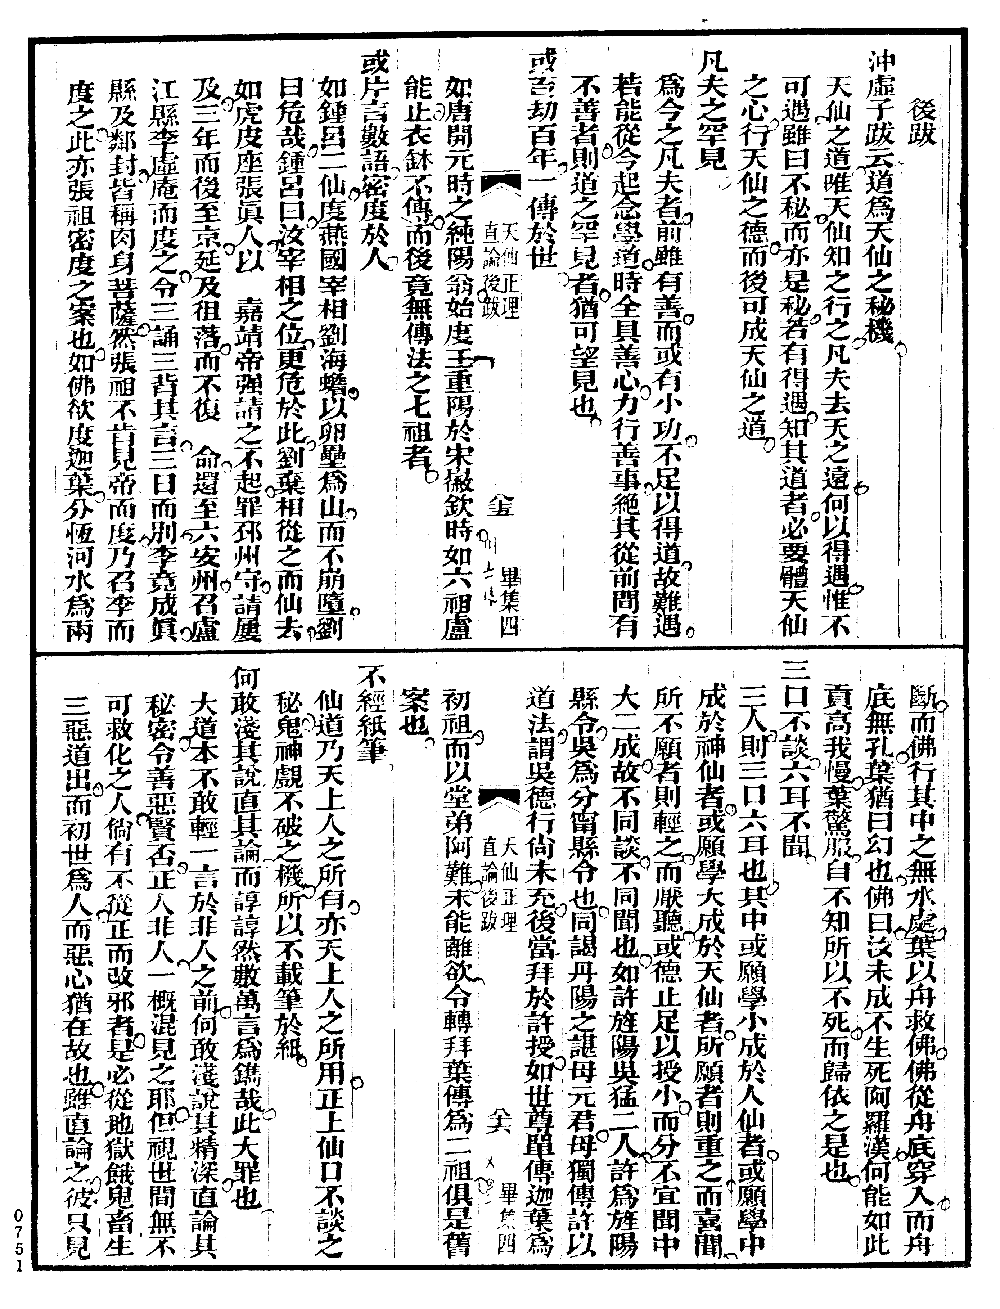 後跋
沖虛子跋云道爲天仙之秘機
天仙之道唯天仙知之行之凡夫去天之遠何以得遇惟不
可遇雖曰不秘而亦是秘若有得遇知其道者必要體天仙
之心行天仙之德而後可成天仙之道
凡夫之罕見
爲今之凡夫者前雖有善而或有小功不足以得道故難遇
若能從今起念學道時全具善心力行善事絕其從前間有
不善者則道之罕見者猶可望見也
或百劫百年一傳於世
天仙正理
直論後跋
畢集四
如唐開元時之純陽翁始度王重陽於宋徽欽時如六祖盧
能止衣鉢不傳而後竟無傳法之七祖者
或片言數語密度於人
如鍾呂二仙度燕國宰相劉海蟾以卵壘爲山而不崩墮劉
曰危哉鍾呂曰汝宰相之位更危於此劉棄相從之而仙去
如虎皮座張眞人以 嘉靖帝强請之不起罪邳州守請屢
及三年而後至京延及祖落而不復 命還至六安州召盧
江縣李虛庵而度之令三誦三背其言三日而別李竟成眞
縣及鄰封皆稱肉身菩薩然張祖不肯見帝而度乃召李而
度之此亦張祖密度之案也如佛欲度迦葉分恆河水爲兩
斷而佛行其中之無水處葉以舟救佛佛從舟底穿入而舟
底無孔葉猶曰幻也佛曰汝未成不生死阿羅漢何能如此
貢高我慢葉驚服自不知所以不死而歸依之是也
三口不談六耳不聞
三人則三口六耳也其中或願學小成於人仙者或願學中
成於神仙者或願學大成於天仙者所願者則重之而喜聞
所不願者則輕之而厭聽或德止足以授小而分不宜聞中
大二成故不同談不同聞也如許旌陽吳猛二人許爲旌陽
縣令吳爲分甯縣令也同謁丹陽之諶母元君母獨傳許以
道法謂吳德行尙未充後當拜於許授如世尊單傳迦葉爲
天仙正理
直論後跋
畢集四
初祖而以堂弟阿難未能離欲令轉拜葉傳爲二祖俱是舊
案也
不經紙筆
仙道乃天上人之所有亦天上人之所用正上仙口不談之
秘鬼神覷不破之機所以不載筆於紙
何敢淺其說直其論而諄諄然數萬言爲鐫哉此大罪也
大道本不敢輕一言於非人之前何敢淺說其精深直論其
秘密令善惡賢否正人非人一概混見之耶但視世間無不
可救化之人倘有不從正而改邪者是必從地獄餓鬼畜生
三惡道出而初世爲人而惡心猶在故也雖直論之彼只見
0751